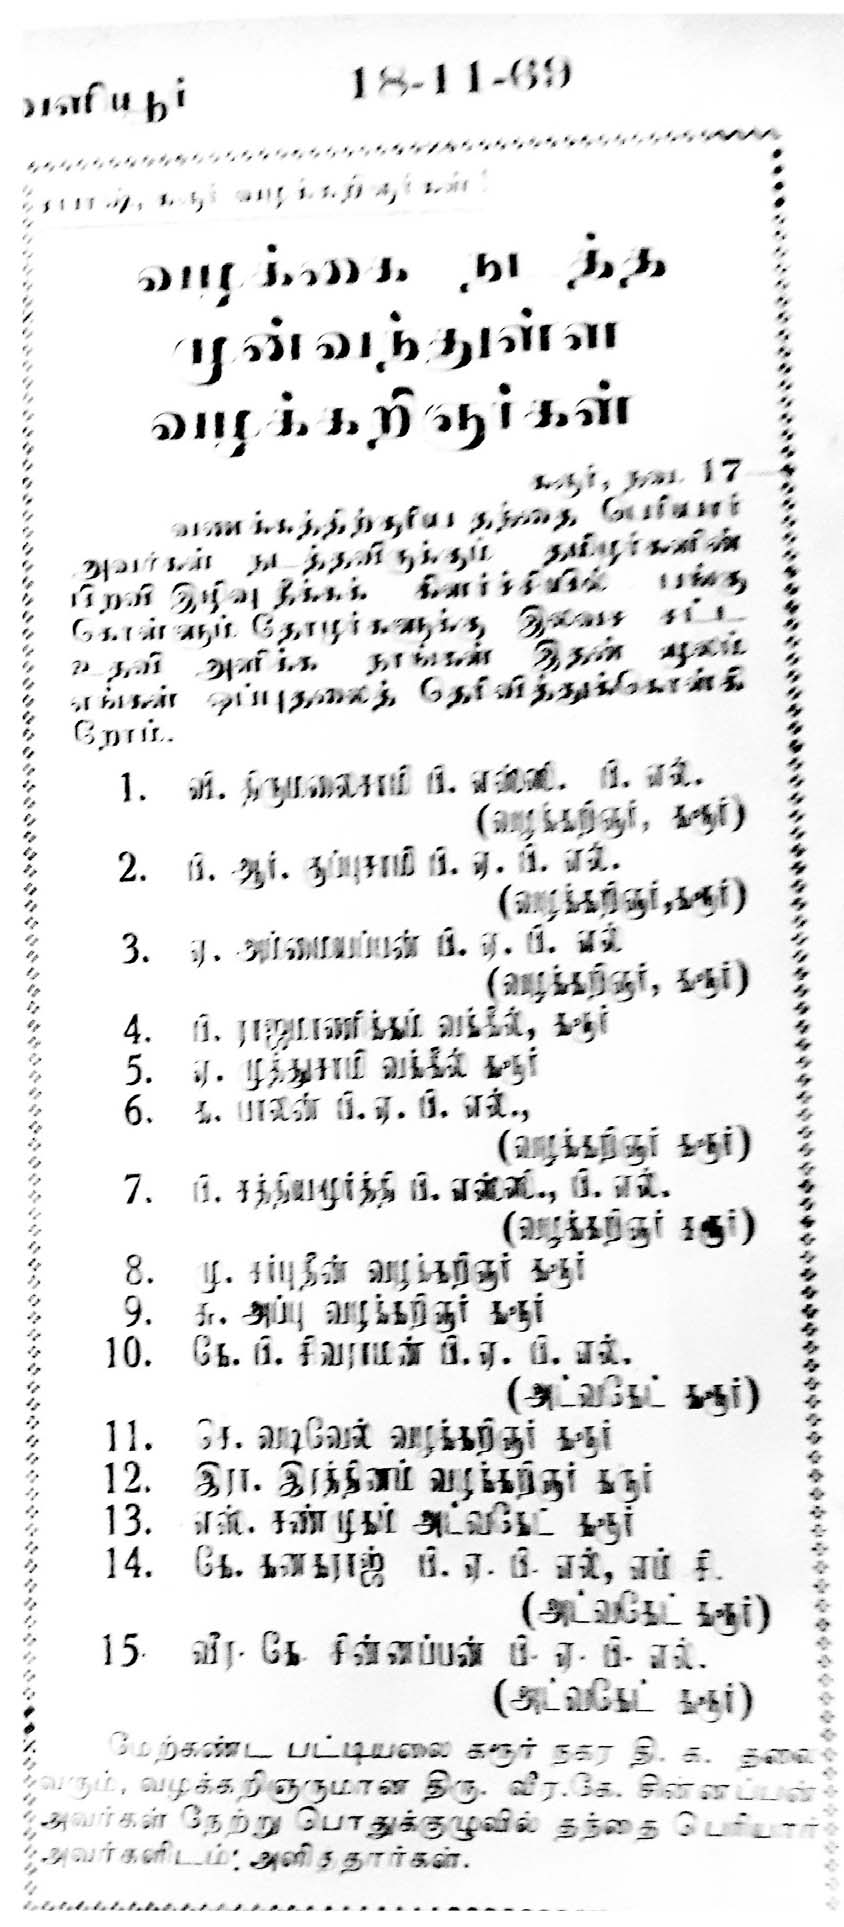 18-11-69
சபாஷ், கரூர் வழக்கறிஞர்கள்!
வழக்கை நடத்த
முன்வந்துள்ள
வழக்கறிஞர்கள்
கரூர், நவ. 17
வணக்கத்திற்குரிய தந்தை பெரியார்
அவர்கள் நடத்தவிருக்கும் தமிழர்களின்
பிறவி இழிவு நீக்கக் கிளர்ச்சியில் பங்கு
கொள்ளும் தோழர்களுக்கு இலவச சட்ட
உதவி அளிக்க நாங்கள் இதன் மூலம்
எங்கள் ஒப்புதலைத் தெரிவித்துக்கொள்கி
றோம்.
1. வி. திருமலைசாமி பி. எஸ்ஸி. பி. எல்.
(வழக்கறிஞர், கரூர்)
2. பி. ஆர். குப்புசாமி பி. ஏ. பி. எல்.
(வழக்கறிஞர்,கரூர்)
3. ஏ. அம்மையப்பன் பி. ஏ. பி. எல்
(வழக்கறிஞர், கரூர்)
4. பி. ராஜமாணிக்கம் வக்கீல், கரூர்
5. ஏ. முத்துசாமி வக்கீல் கரூர்
6. க. பாலன் பி.ஏ. பி. எல்.,
(வழக்கறிஞர் கரூர்)
7. பி. சத்தியமூர்த்தி பி. எஸ்ஸி., பி. எல்.
(வழக்கறிஞர் கரூர்)
8. மு. சம்புதீன் வழக்கறிஞர் கரூர்
9. சு. அப்பு வழக்கறிஞர் கரூர்
10. கே. பி. சிவராமன் பி.ஏ. பி. எல்.
(அட்வகேட் கரூர்)
11. செ. வடிவேல் வழக்கறிஞர் கரூர்
12. இரா. இரத்தினம் வழக்கறிஞர் கரூர்
13. எஸ். சண்முகம் அட்வகேட் கரூர்
14. கே. கனகராஜ் பி. ஏ. பி. எல், எம் சி.
(அட்வகேட் கரூர்)
15. வீர. கே. சின்னப்பன் பி. ஏ. பி. எல்.
(அட்வகேட் கரூர்)
மேற்கண்ட பட்டியலை கரூர் நகர தி. க. தலை
வரும், வழக்கறிஞருமான திரு. வீர.கே. சின்னப்பன்
அவர்கள் நேற்று பொதுக்குழுவில் தந்தை பெரியார்
அவர்களிடம் அளித்தார்கள்.